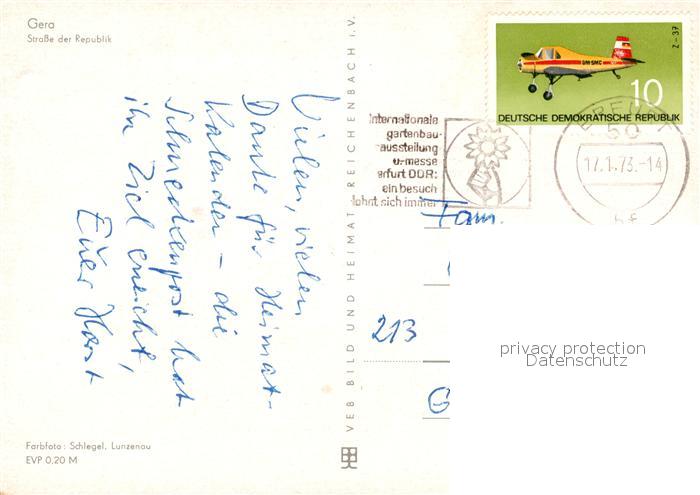 Gera
Straße der Republik
Vielen, vielen
Dank für Heimat-
kalender – die
Schneckenpost hat
ihr Ziel erreicht,
Euer Horst
Farbfoto: Schlegel, Lunzenau
EVP 0,20 M
VEB BILD UND HEIMAT REICHENBACH i.V.
DM-SMC
Z-37
10
DEUTSCHE DEMOKRATISCHE REPUBLIK
Internationale
gartenbau-
ausstellung
u-messe
erfurt DDR:
ein besuch
lohnt sich immer
ERFURT
50
17.1.73.-14
hf
Fam.
213
G
privacy protection
Datenschutz